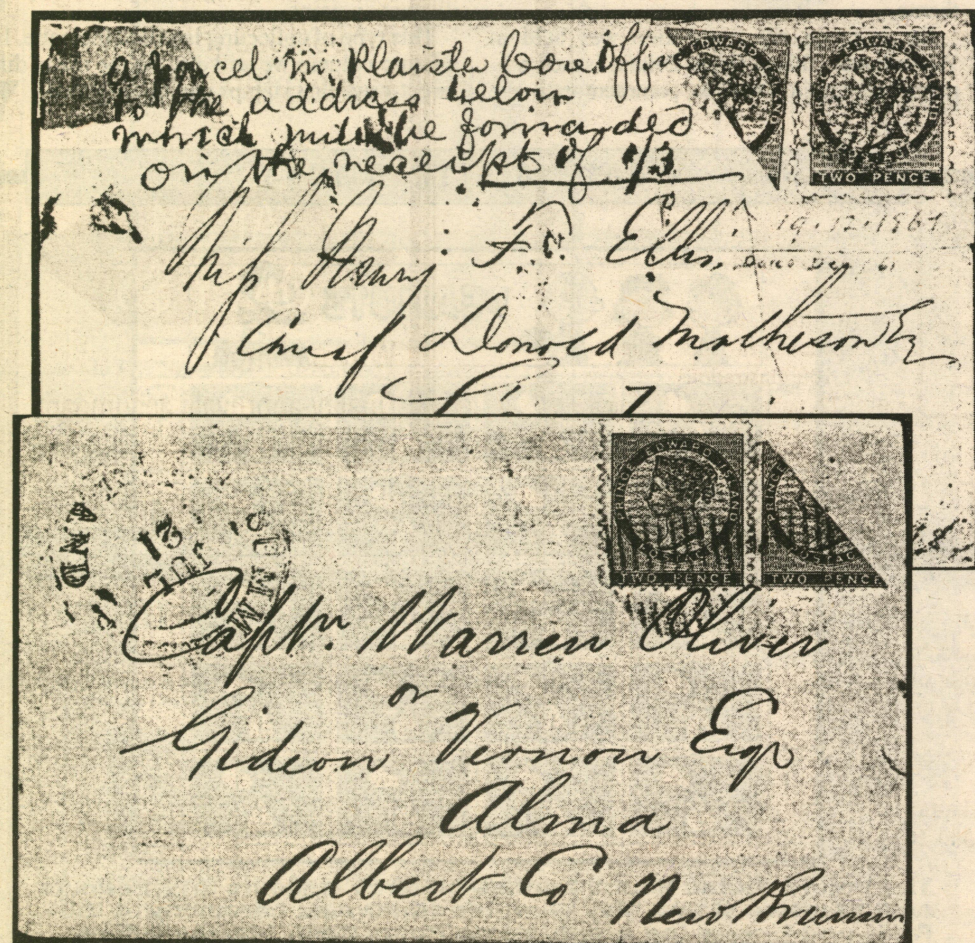 a parcel in Plaister Cove Office
to the address below
which will be forwarded
on the receipt of 1/3
PRINCE EDWARD ISLAND
TWO PENCE
19.12.1861
Henry F. Ellis.
Donald Matheson Esq
PRINCE EDWARD ISLAND
TWO PENCE
TWO PENCE
SUMM
21
JUL
Captn. Warren Oliver
or
Gideon Vernon Esqr
Alma
Albert Co New Brunsw